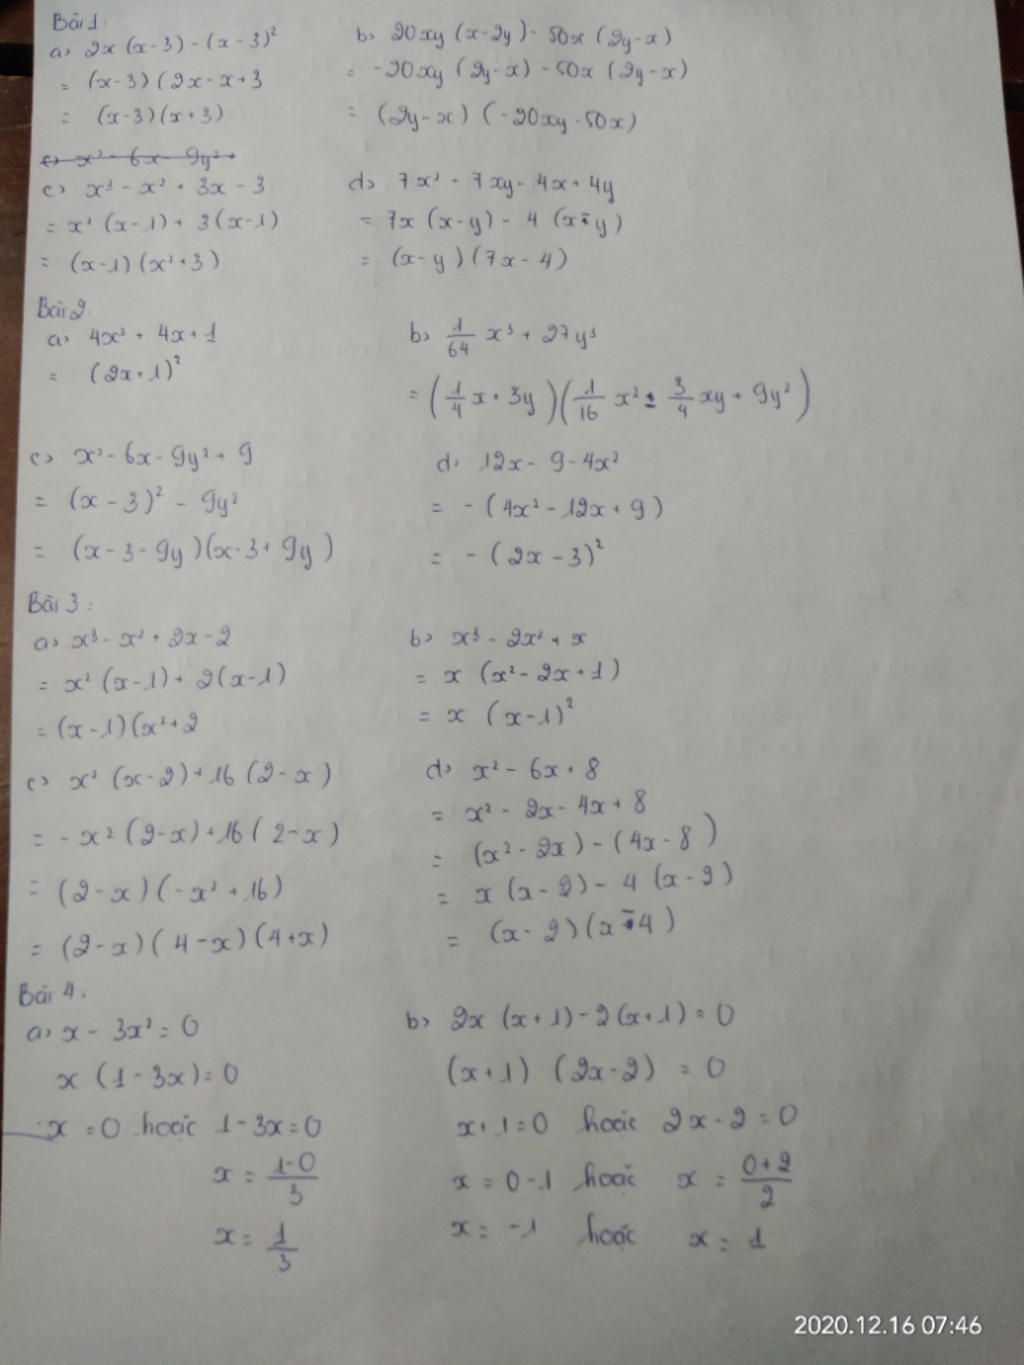 Bài 1:
a> 2x (x-3) - (x-3)²
= (x-3) (2x - x+3
= (x-3) (x+3)
b> 20xy (x-2y) - 50x (2y-x)
= -20xy (2y-x) - 50x (2y-x)
= (2y-x) (-20xy-50x)
c> x² - 6x - 9y² +
c> x³ - x² + 3x - 3
= x² (x-1) + 3(x-1)
= (x-1) (x²+3)
d> 7x² - 7xy - 4x + 4y
= 7x (x-y) - 4 (x-y)
= (x-y) (7x-4)
Bài 2:
a> 4x² + 4x + 1
= (2x+1)²
b> 1/64 x³ + 27y³
= (1/4 x + 3y) (1/16 x² ± 3/4 xy + 9y²)
c> x² - 6x - 9y² + 9
= (x-3)² - 9y²
= (x-3-9y) (x-3+9y)
d> 12x - 9 - 4x²
= -(4x² - 12x + 9)
= -(2x-3)²
Bài 3:
a> x³ - x² + 2x - 2
= x² (x-1) + 2(x-1)
= (x-1) (x²+2
b> x³ - 2x² + x
= x (x² - 2x + 1)
= x (x-1)²
c> x² (x-2) + 16 (2-x)
= -x² (2-x) + 16 (2-x)
= (2-x) (-x² + 16)
= (2-x) (4-x) (4+x)
d> x² - 6x + 8
= x² - 2x - 4x + 8
= (x² - 2x) - (4x-8)
= x (x-2) - 4 (x-2)
= (x-2) (x-4)
Bài 4:
a> x - 3x² = 0
x (1-3x) = 0
x = 0 hoặc 1-3x=0
x = 1-0/3
x = 1/3
b> 2x (x+1) - 2(x+1) = 0
(x+1) (2x-2) = 0
x+1=0 hoặc 2x-2=0
x = 0-1 hoặc x = 0+2/2
x = -1 hoặc x = 1
2020.12.16 07:46